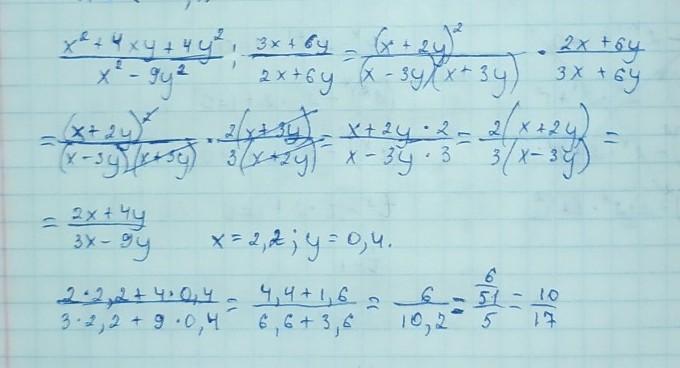 x² + 4xy + 4y² / x² - 9y² ; 3x + 6y / 2x + 6y = (x + 2y)² / (x - 3y)(x + 3y) · 2x + 6y / 3x + 6y
= (x + 2y)² / (x - 3y)(x + 3y) · 2(x + 3y) / 3(x + 2y) = x + 2y · 2 / x - 3y · 3 = 2(x + 2y) / 3(x - 3y) =
= 2x + 4y / 3x - 9y x = 2,2; y = 0,4.
2·2,2 + 4·0,4 / 3·2,2 + 9·0,4 = 4,4 + 1,6 / 6,6 + 3,6 = 6 / 10,2 = 6 / 51 / 5 = 10 / 17